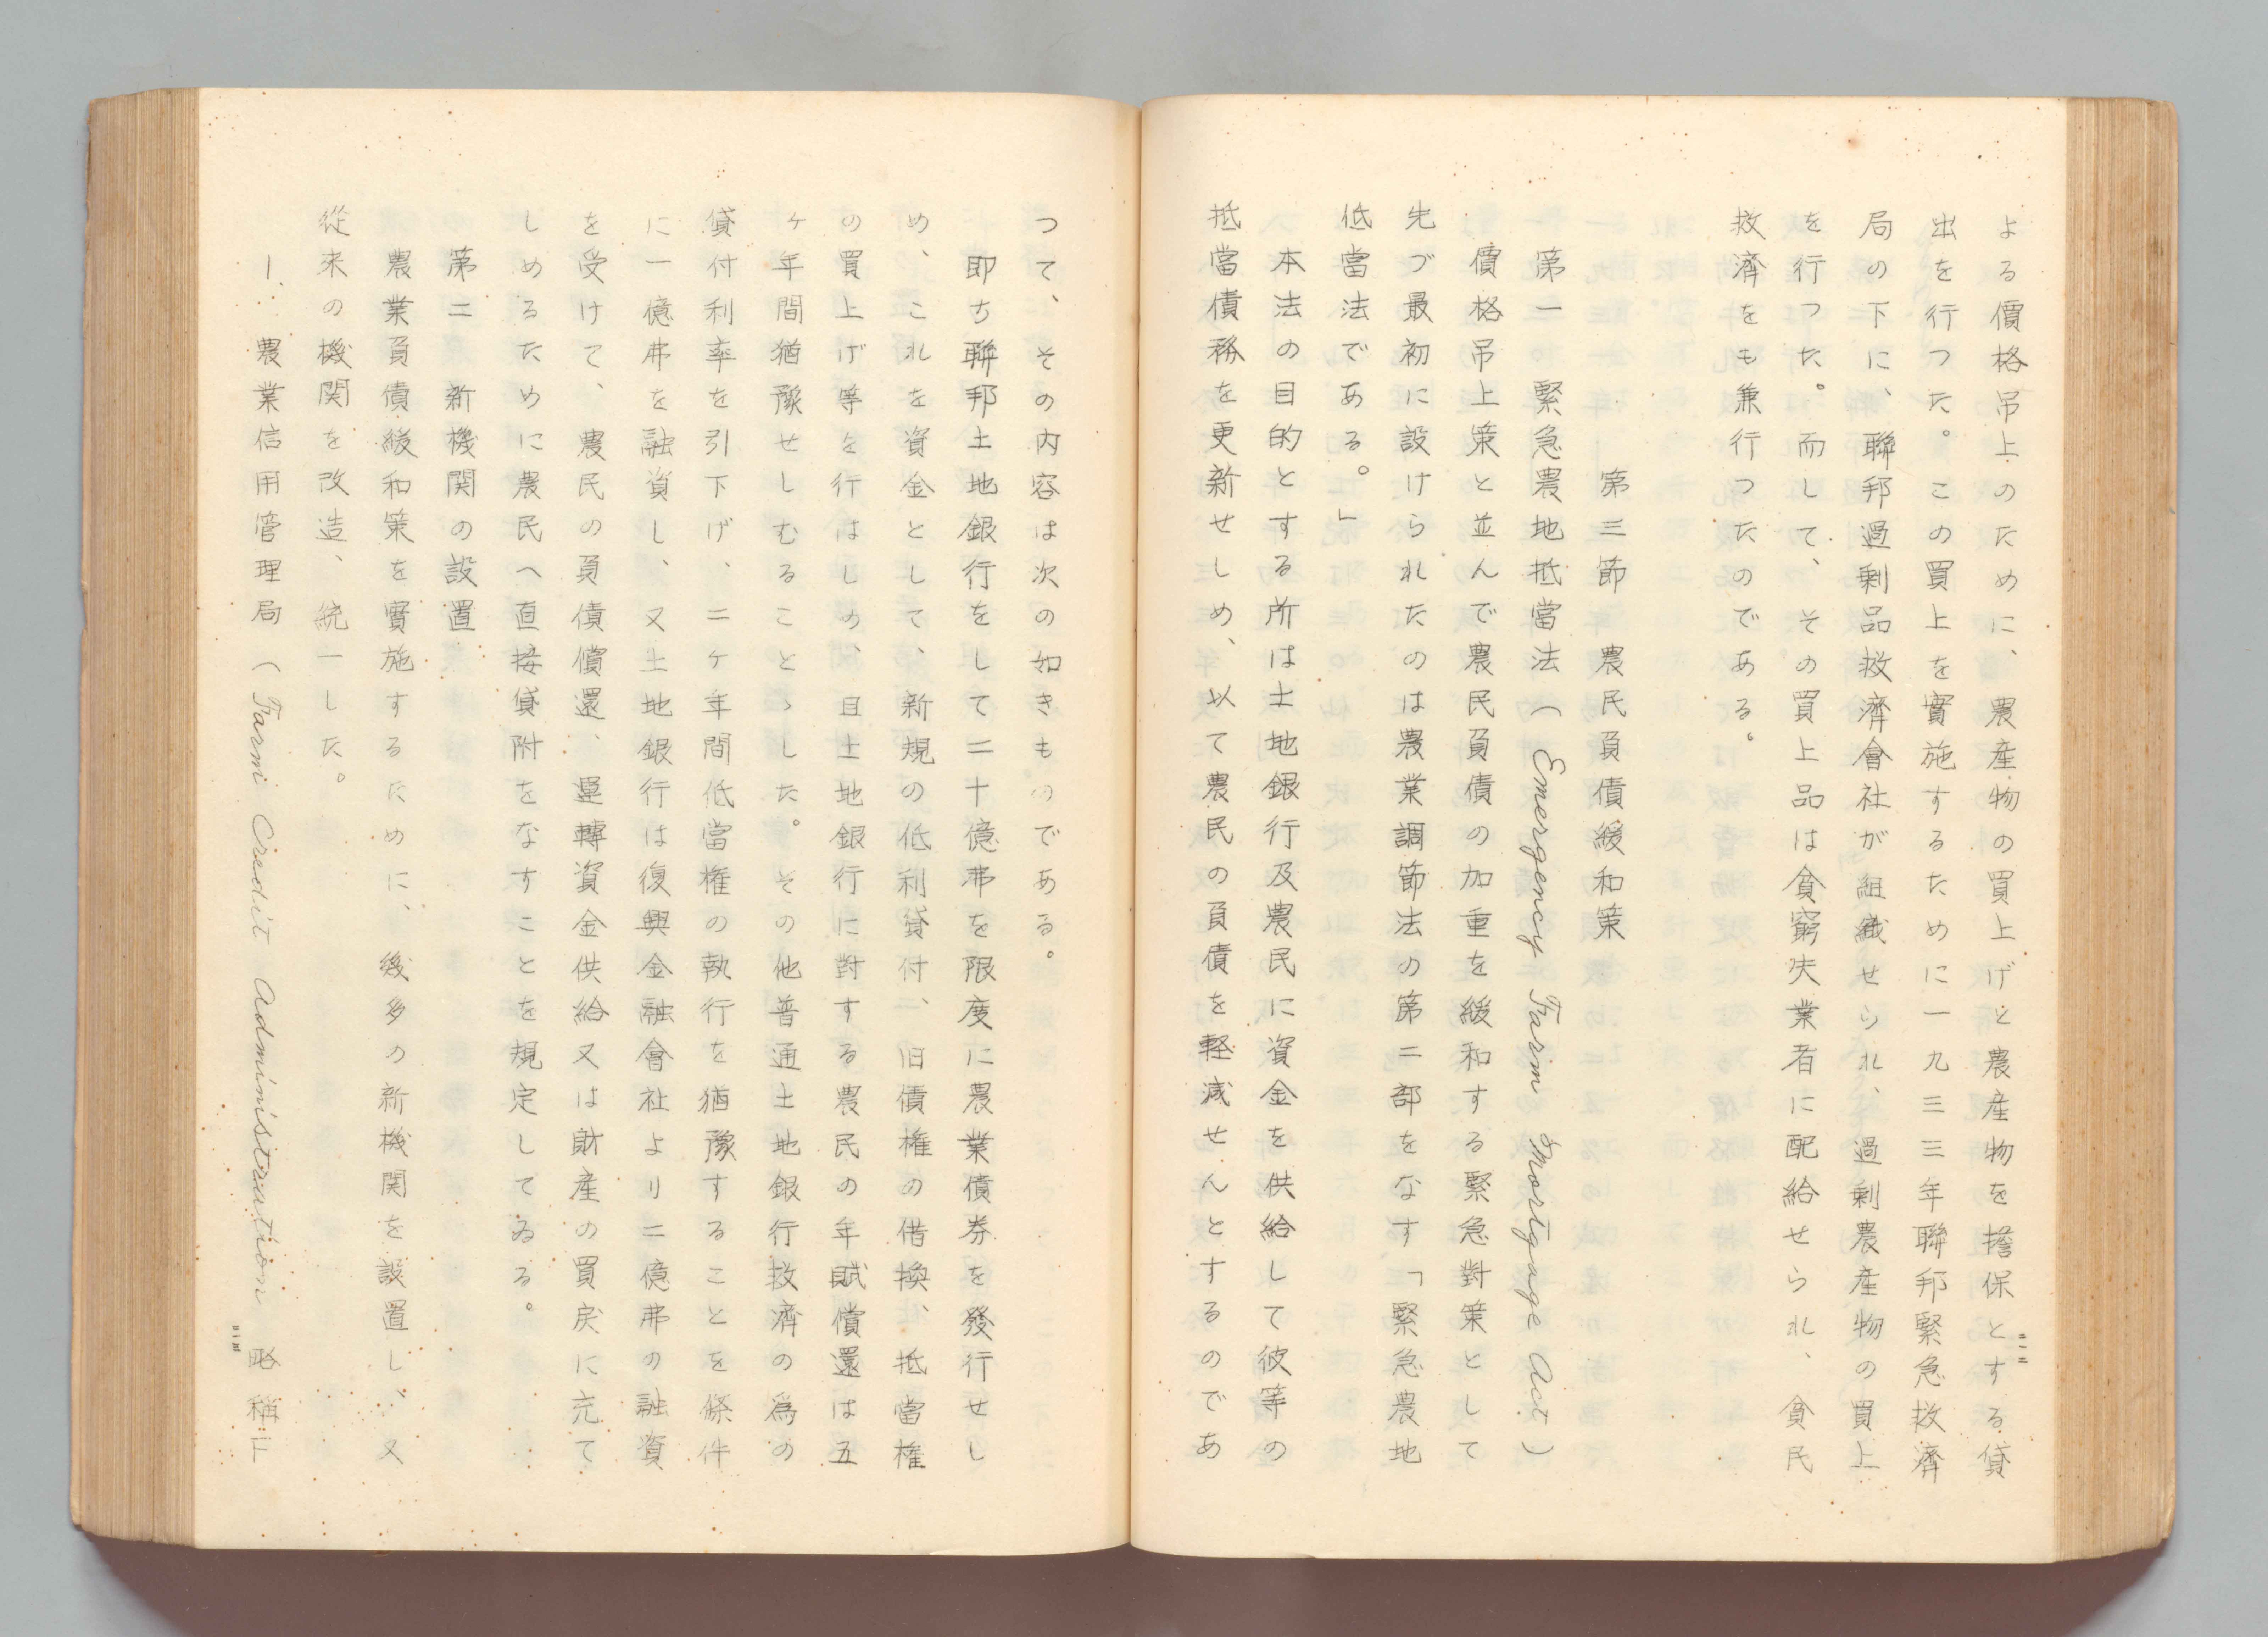 よる價格吊上のために、農産物の買上げと農産物を擔保とする貸
出を行つた。この買上を實施するために一九三三年聯邦緊急救濟
局の下に、聯邦過剰品救濟會社が組織せられ、過剰農産物の買上
を行つた。而して、その買上品は貧窮失業者に配給せられ、貧民
救濟をも兼行つたのである。
第三節 農民負債緩和策
第一 緊急農地抵當法（Emergency Farm Mortgage Act）
價格吊上策と並んで農民負債の加重を緩和する緊急對策として
先づ最初に設けられたのは農業調節法の第二部をなす「緊急農地
低當法である。」
本法の目的とする所は土地銀行及農民に資金を供給して彼等の
抵當債務を更新せしめ、以て農民の負債を軽減せんとするのであ
つて、その内容は次の如きものである。
即ち聯邦土地銀行をして二十億弗を限度に農業債券を發行せし
め、これを資金として、新規の低利貸付、旧債権の借換、抵當権
の買上げ等を行はしめ、且土地銀行に對する農民の年賦償還は五
ヶ年間猶豫せしむることゝした。その他普通土地銀行救濟の爲の
貸付利率を引下げ、二ヶ年間低當権の執行を猶豫することを條件
に一億弗を融資し、又土地銀行は復興金融會社より二億弗の融資
を受けて、農民の負債償還、運轉資金供給又は財産の買戻に充て
しめるために農民へ直接貸附をなすことを規定してゐる。
第二 新機関の設置
農業負債緩和策を實施するために、幾多の新機関を設置し、又
從来の機関を改造、統一した。
1、農業信用管理局（Farm Credit Administration 略稱下